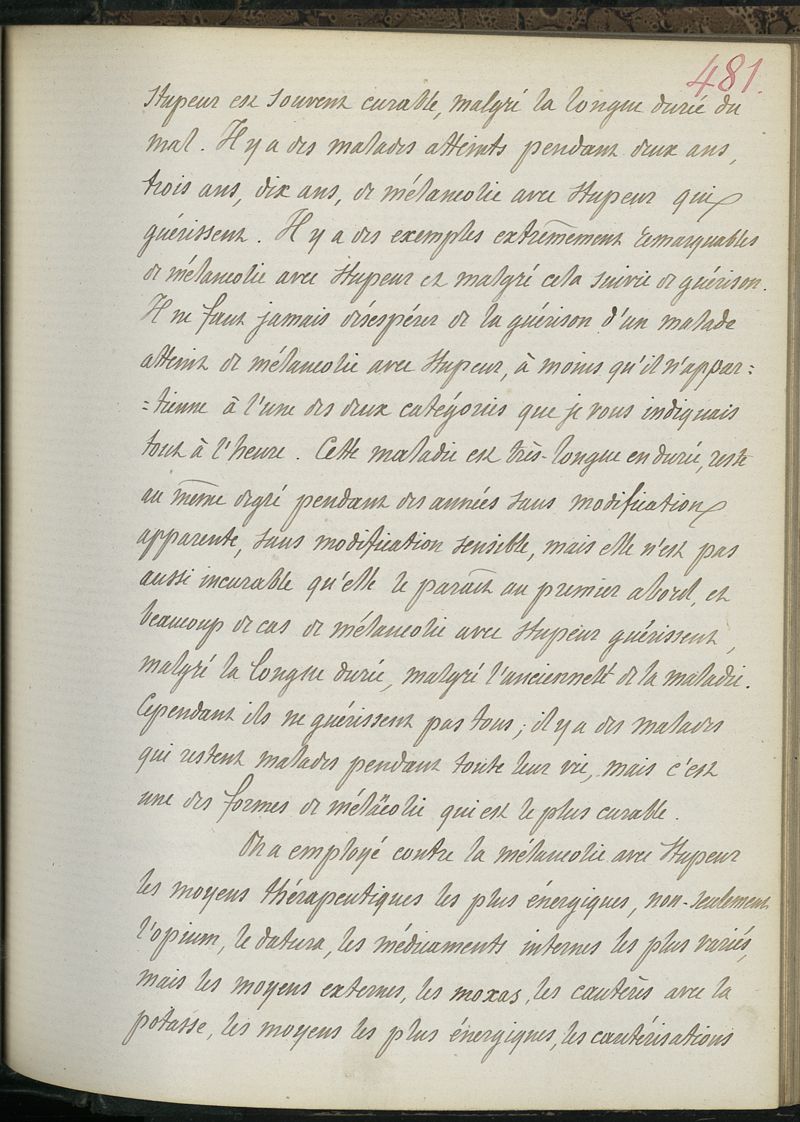 481.
stupeur est souvent curable, malgré la longue durée du
mal. Il y a des malades atteints pendant deux ans,
trois ans, dix ans, de mélancolie avec stupeur qui
guérissent. Il y a des exemples extrêmement remarquables
de mélancolie avec stupeur et malgré cela suivie de guérison.
Il ne faut jamais désespérer de la guérison d'un malade
atteint de mélancolie avec stupeur, à moins qu'il n'appar=
=tienne à l'une des deux catégories que je vous indiquais
tout à l'heure. Cette maladie est très-longue en durée, reste
au même degré pendant des années sans modification
apparente, sans modification sensible, mais elle n'est pas
aussi incurable qu'elle le paraît au premier abord, et
beaucoup de cas de mélancolie avec stupeur guérissent,
malgré la longue durée, malgré l'ancienneté de la maladie.
Cependant ils ne guérissent pas tous; il y a des malades
qui restent malades pendant toute leur vie, mais c'est
une des formes de mélancolie qui est le plus curable.
On a employé contre la mélancolie avec stupeur
les moyens thérapeutiques les plus énergiques, non-seulement
l'opium, le datura, les médicaments internes les plus variés,
mais les moyens externes, les moxas, les cautères avec la
potasse, les moyens les plus énergiques, les cautérisations